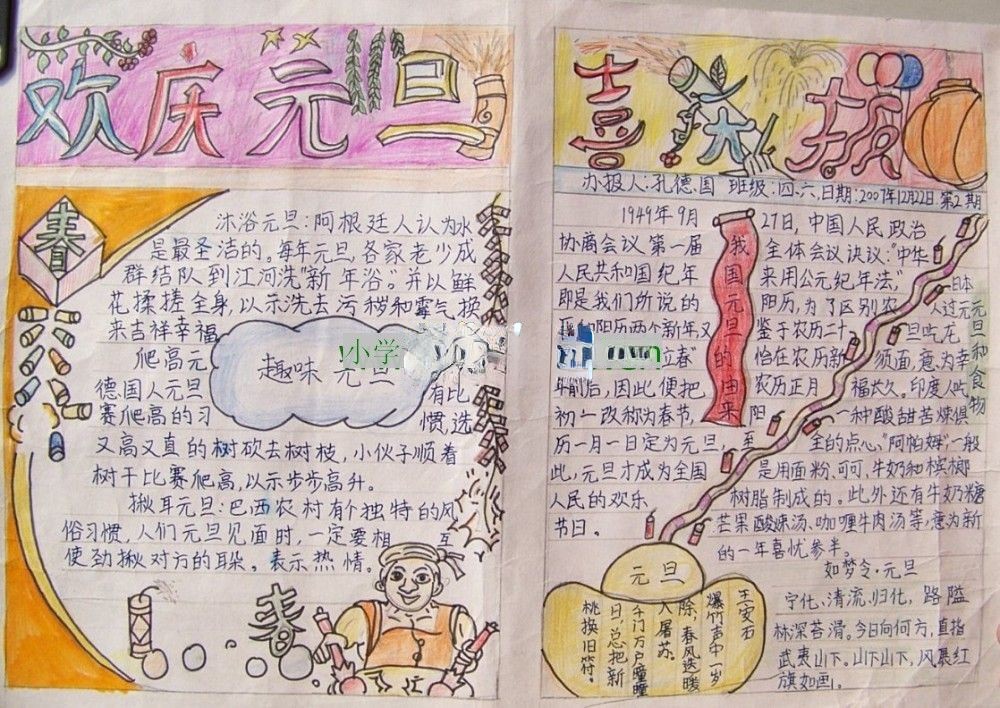 欢庆元旦
春
沐浴元旦:阿根廷人认为水
是最圣洁的。每年元旦,各家老少成
群结队到江河洗"新年浴"。并以鲜
花揉搓全身,以示洗去污秽和霉气换
来吉祥幸福
爬高元
德国人元旦
有比
赛爬高的习
惯,选
又高又真的树砍去树枝,小伙子顺着
树干比赛爬高,以示步步高升。
揪耳元旦:巴西农村有个独特的风
俗习惯,人们元旦见面时,一定要相互
使劲揪对方的耳朵。表示热情。
趣味元旦
小学
春
喜
办报人:孔德国 班级:四.六 日期:2007年12月22日 第2期
1949年9月27日,中国人民政治
协商会议第一届全体会议决议:"中华
人民共和国纪年来用公元纪年法"
即是我们所说的阳历,为了区别农
和阳历两个新年又鉴于农历二十
立春"恰在农历新
年前后,因此便把农历正月
初一改称为春节,阳
历一月一日定为元旦,至
此,元旦才成为全国
人民的欢乐
节日。
我国元旦的由来
元旦和食物
日本
人过元
旦吃龙
须面,意为幸
福长久。印度人吃
一种酸甜苦辣俱
全的点心,"阿帕姆"一般
是用面粉、可可、牛奶和槟榔
树脂制成的。此外还有牛奶糖
芒果酸辣汤、咖喱牛肉汤等,意为新
的一年喜忧参半。
如梦令·元旦
宁化、清流、归化,路隘
林深苔滑。今日向何方,直指
武夷山下。山下山下,风展红
旗如画。
元旦
王安石
爆竹声中一岁
除,春风送暖
入屠苏。
千门万户瞳瞳
日,总把新
桃换旧符.